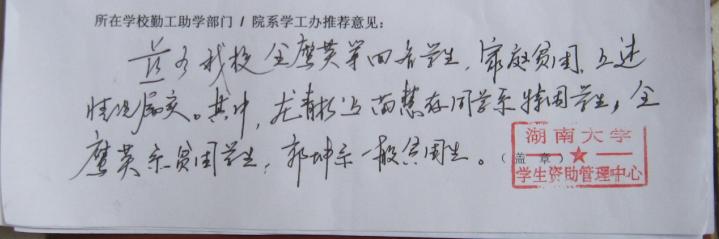 所在学校勤工助学部门 / 院系学工办推荐意见：
兹有我校全鹰英等四名学生，家庭贫困，上述
情况属实。其中，尤青松与苗慧存同学系特困学生，全
鹰英系贫困学生，郭坤系一般贫困生。（盖 章）
湖南大学
学生资助管理中心